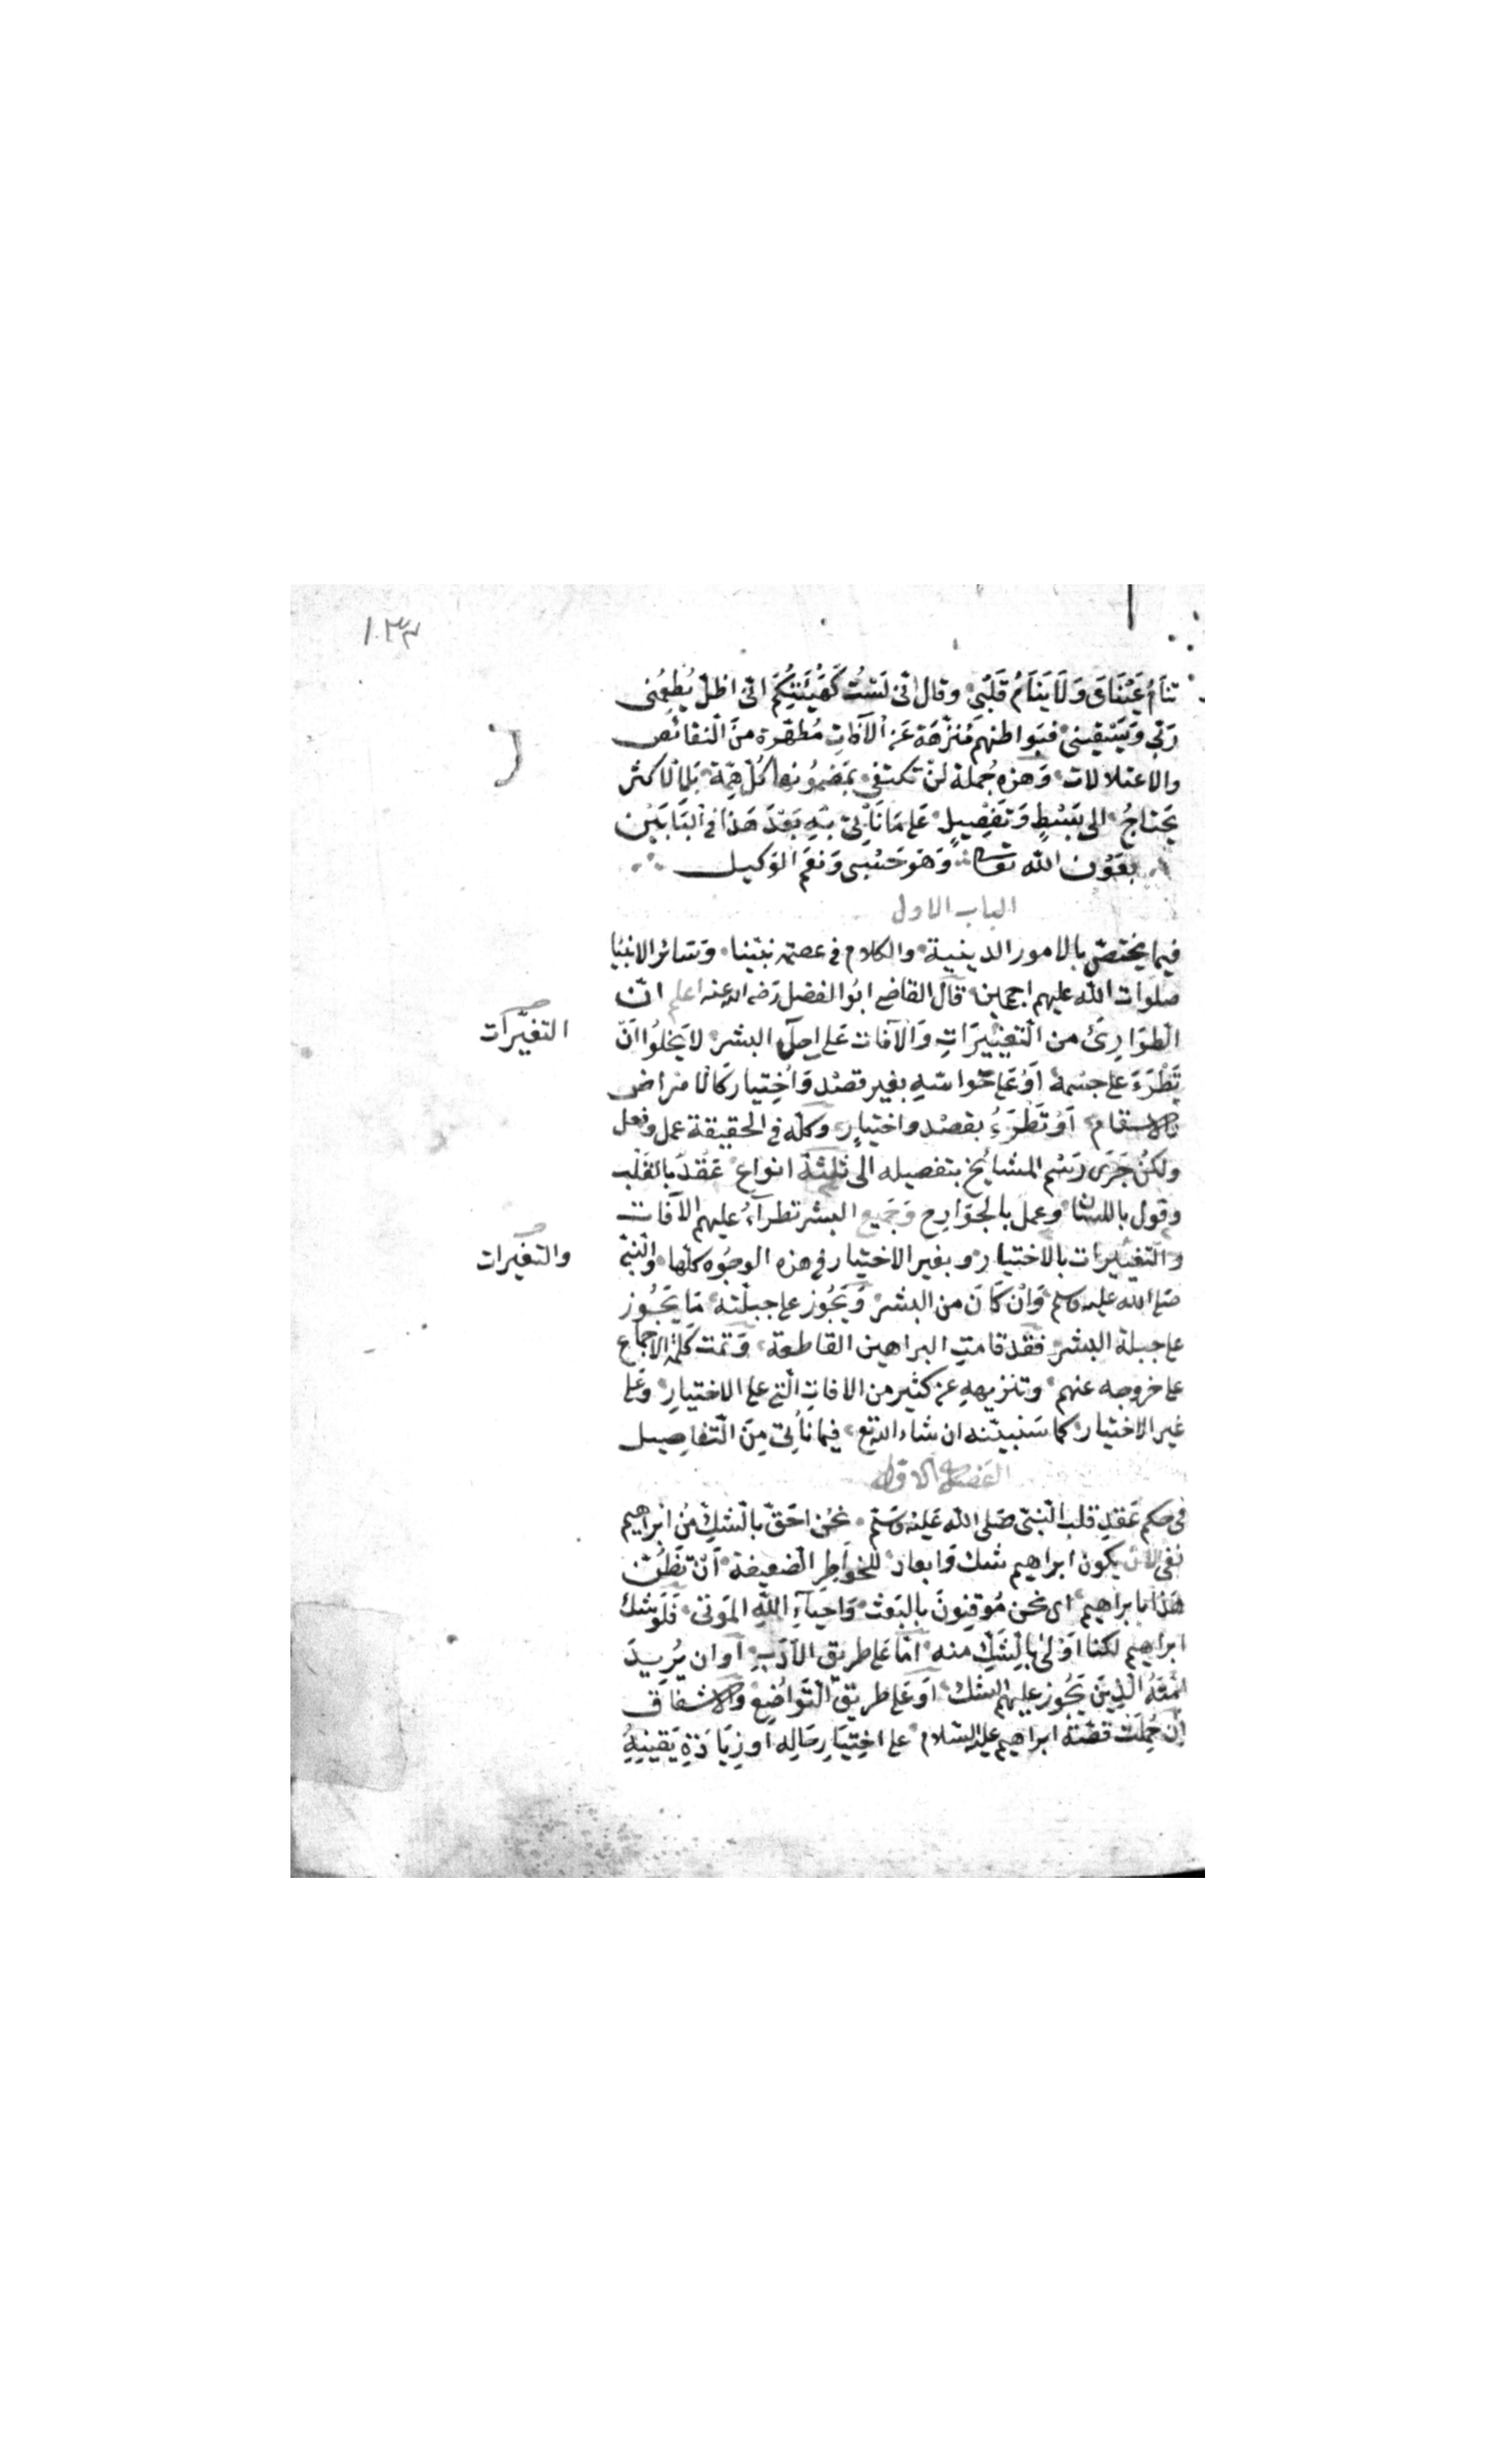 ١٣٣
تَنَامُ عَيْنَايَ وَلَا يَنَامُ قَلْبِي وقال اني لَسْتُ كَهَيْئَتِكُمْ اني اظلّ يُطْعِمُني
رَبّي وَيَسْقِيني فبَواطنهم مُنَزَّهَة عَن الآفاتِ مُطَهَّرة مِنَ النقائص
والاعتلالات وَهَذه جُملة لَنْ تكتفي بمَضْمُونها كُلّ هِمّة بَل الاكثر
يَحْتَاجُ الى بَسْطٍ وَتَفْصِيلٍ عَلى مَا نَأْتي بِهِ بَعْدَ هَذَا في البَابَيْن
بعَوْن الله تعَالى وَهوَ حَسْبي وَنعم الوَكيل
الباب الاول
فيما يختصّ بالامور الدينية والكلام في عصمة نبيّنا وَسَائر الانبيا
صَلوَات الله عليهم اجمعين قالَ القاضي ابُو الفضل رَضي الله عنه اعلم انّ
الطوَارِئ من التغيّيرَاتِ وَالآفات عَلى احآد البشر لا يَخلُوا انّ
التغيّرات
تَطْرَءَ على جسْمه اوْ عَلى حَوَاسّهِ بغير قصْد وَاخْتيار كَالامْراض
والاسقام اَوْ تَطْرَءُ بقصْد واختيارٍ وَكلّه في الحقيقة عمل وفعل
ولكنْ جَرَى رَسْم المشايخ بتفصيله الى ثلثة انواع عَقْد بالقلْب
وقول باللسان وعمل بالجوَارِح وَجَميع البشر تطرآءُ عليهم الآفات
والتغيّيرات بالاختيار وبغير الاختيار في هذه الوجُوه كلّها والنّبيّ
والتغيّرات
صَلى الله عليه وسلم وَانْ كَانَ من البشر وَيَجُوز على جبلّته مَا يَجُوز
على جبلة البشر فقد قامتِ البراهين القاطعة وَتمت كَلمة الاجماع
على خروجه عنهم وتنزيههِ عن كثير من الافاتِ الّتي على الاختيارِ وعَلى
غير الاختيار كما سَنبيّنه ان شاء الله تع فيما نأتي مِنَ التّفاصِيل
الفصل الاول
في حكم عَقدِ قلب النّبيّ صَلى الله عَليْه وَسَلّم نحْن احَقّ بالشكِّ مِنْ ابْراهيم
نفى لان يكون ابراهيم شك وَابعاد للخواطر الضّعيفة اَنْ تَظُنّ
هَذا بابراهيم اى نحن مُوقِنونَ بالبَعث وَاحْيَآءِ اللهِ المَوْتى فَلَو شك
ابراهيم لكنا اوْلى بالشكّ منه امّا عَلى طريق الأدَبِ اَوان يُرِيدَ
امّتهُ الّذِينَ يَجُوز عليهمُ الشك اوْ عَلى طريق التّوَاضُعِ وَالاشفاقِ
ان حُملَت قصّة ابراهيم عليه السّلام على اختِيَارِ حَاله اَو زِيَادَةِ يَقينِهِ